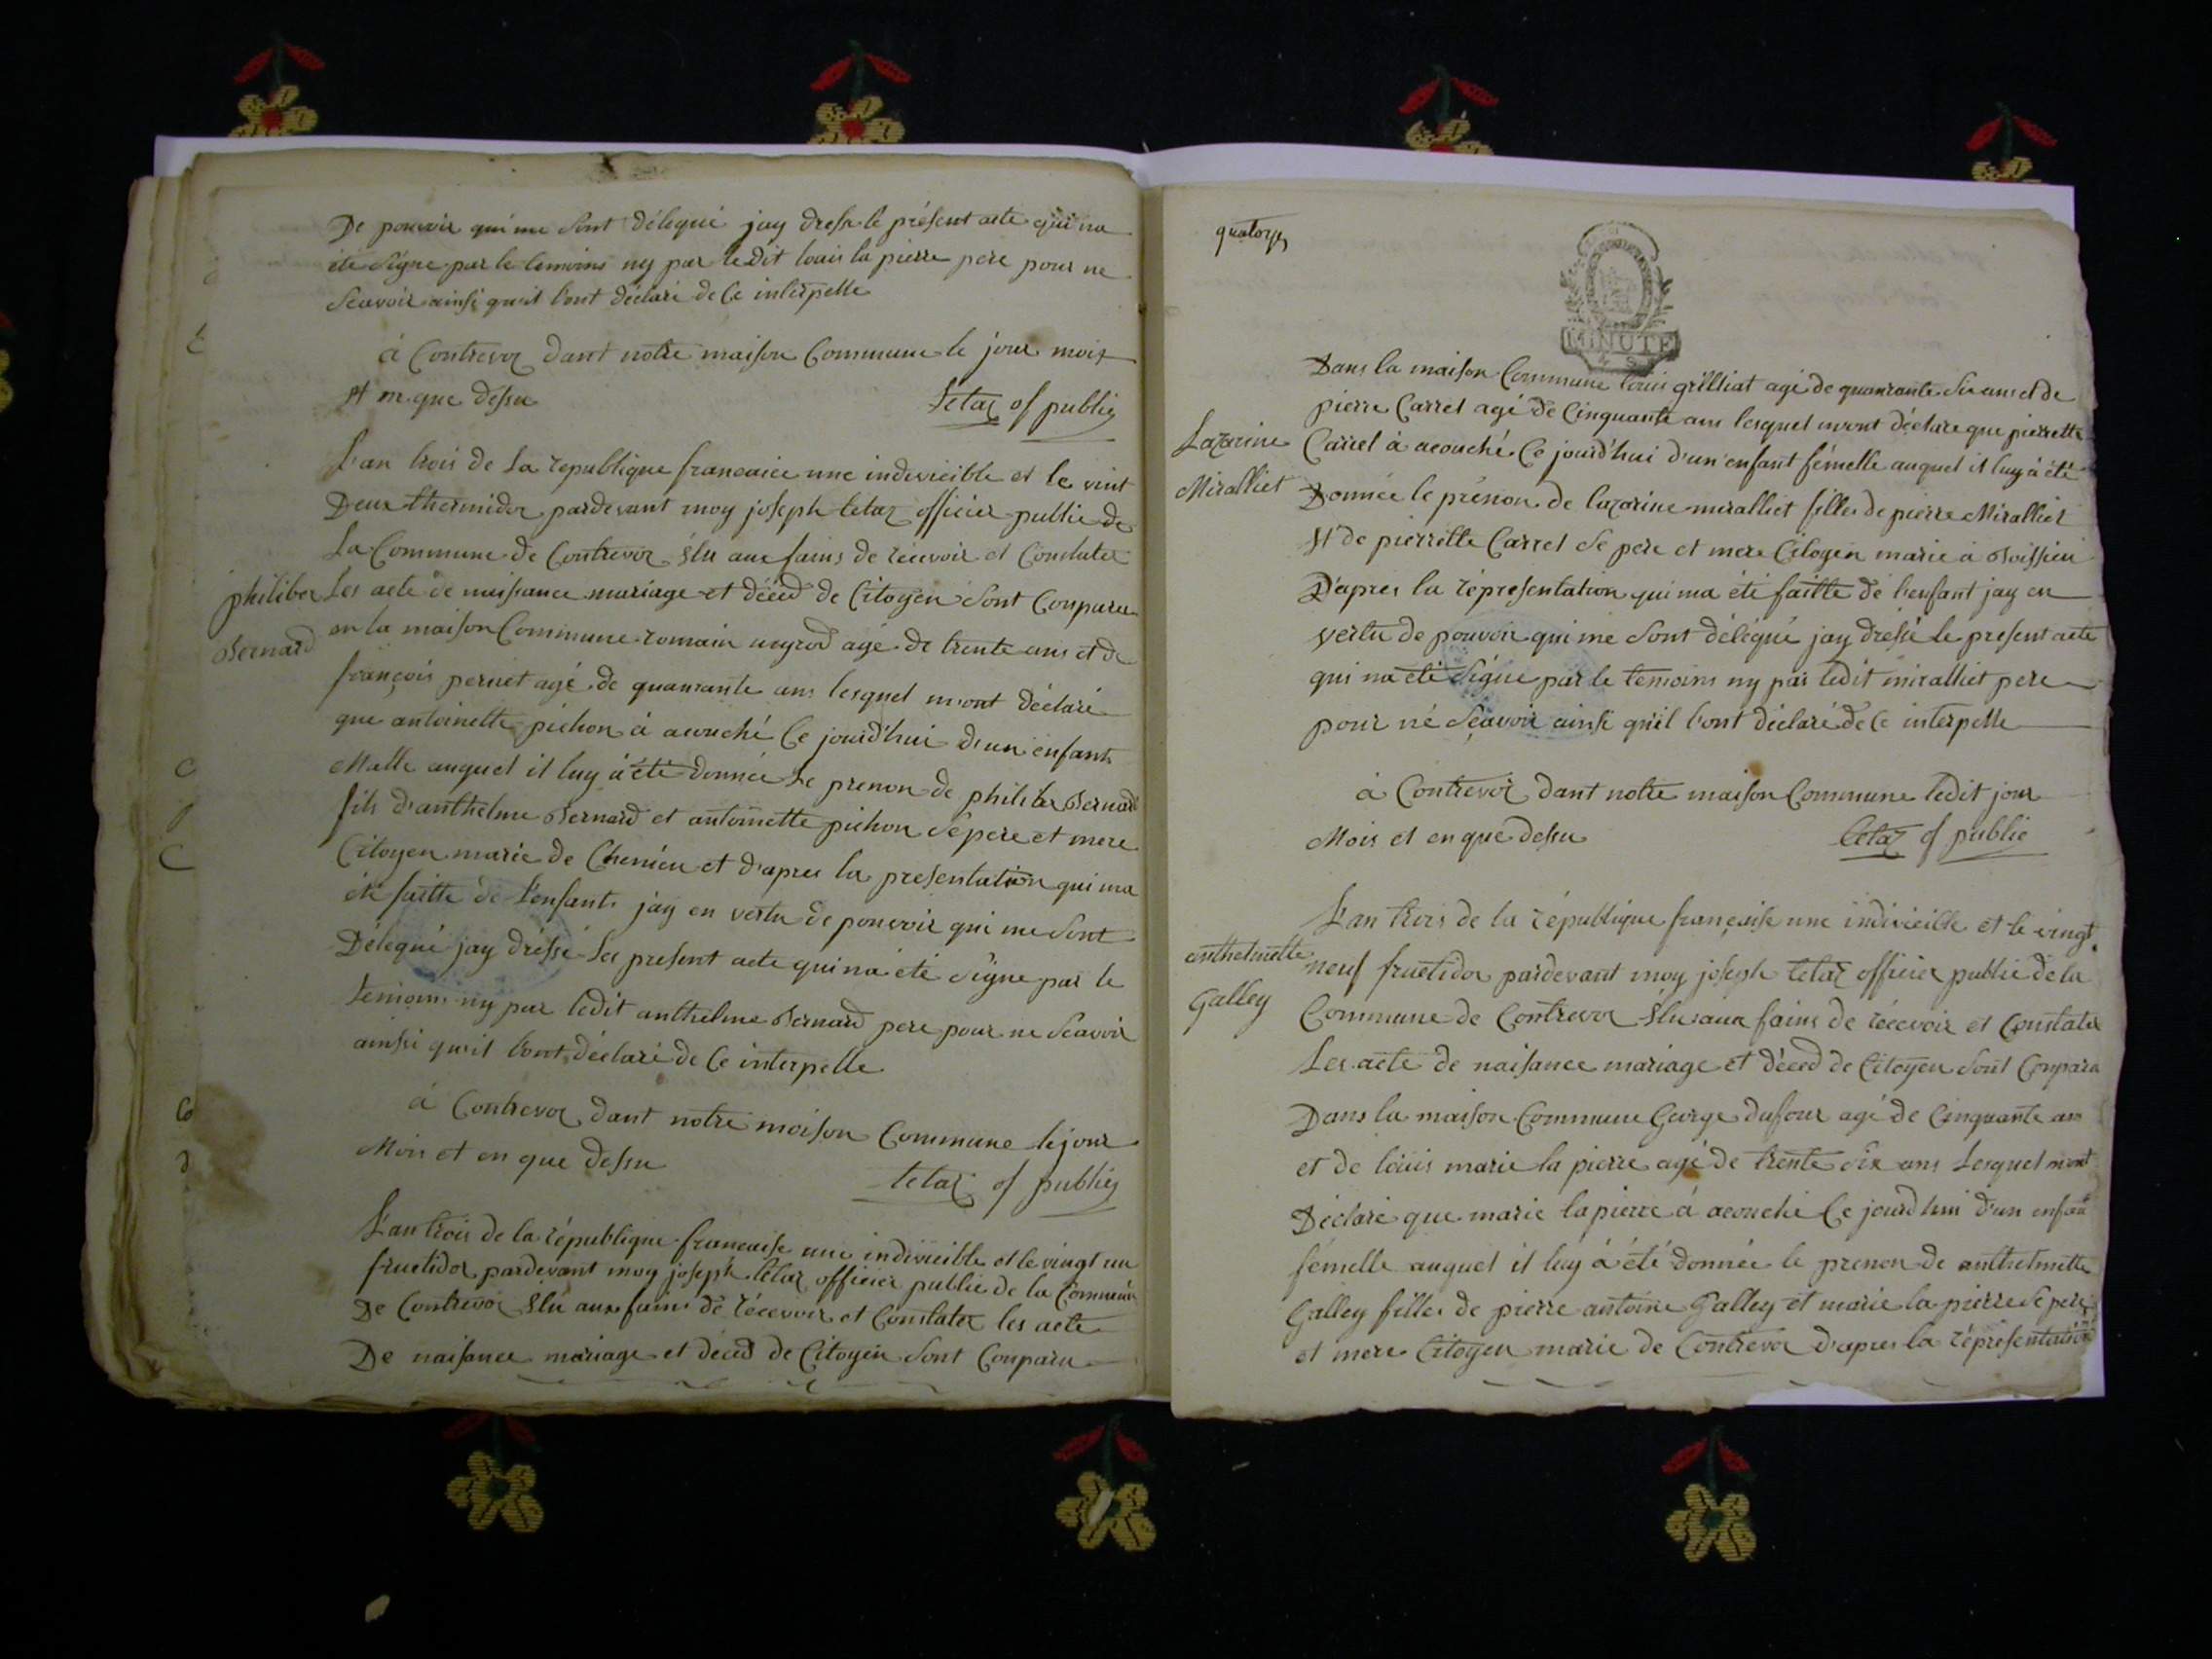 De pouvoir qui me sont délequé jay dresse le présent acte qui na
été signe par le temoins ny par ledit louis la pierre pere pour ne
sçavoir ainsi quil l'ont déclaré de ce interpelle
à Contrevoz dant notre maison Commune le jour mois
et en que dessu
tetaz of public
L'an trois de la republique francaice une indivicible et le vint
Deux thermidor pardevant moy joseph tetaz officier public de
La Commune de Contrevoz élu aux fains de récevoir et Constater
philiber
Bernard
Les acte de naissance mariage et déced de Citoyen sont Conparu
en la maison Commune romain agé de trente ans et de
françois pernet agé de quamrante ans lesquel m'ont déclaré
que antoinette pichon à acouché Ce jourd'hui d'un enfant
Malle auquel il luy à été donnée le prenon de philiber Bernard
fils d'anthelme Bernard et antoinette pichon sé pere et mere
Citoyen marie de Cheméu et d'apres la presentation qui ma
été faitte de l'enfant jay en vertu de pouvoir qui me sont
Délequé jay dréssé les present acte qui na été signe par le
temoins ny par ledit anthelme Bernard pere pour ne sçavoir
ainssi quil l'ont déclaré de Ce interpelle
à Contrevoz dant notre maison Commune le jour
Mois et en que dessu
tetaz of public
L'an trois de la république francaise une indivicible et le vingt un
fructidor pardevant moy joseph tetaz officier public de la Commune
De Contrevoz élu aux fains de récevoir et Constater les acte
De naisance mariage et déced de Citoyen sont Conparu
quatorze
MINUTE
Dans la maison Commune louis grilliat agé de quamrante six ans et de
pierre Carrel agé de Cinquante ans lesquel mont déclare que pierrette
Lazarine
Miralliet
Carrel à acouché Ce jourd'hui d'un enfant fémelle auquel il luy à été
Donnée le prénon de lazarine miralliet fille de pierre Miralliet
et de pierrette Carrel sé pere et mere Citoyen marie à Boissieu
D'apres la répresentation qui ma été faitte de l'enfant jay en
vertu de pouvoir qui me sont délequé jay dressé le present acte
qui na été signe par le temoins ny par ledit miralliet pere
pour né sçavoir ainsi quil l'ont déclaré de Ce interpelle
à Contrevoz dant notre maison Commune ledit jour
Mois et en que dessu
tetaz of public
L'an trois de la république françaisse une indivicible et le vingt
anthelmette
Galley
neuf fructidor pardevant moy joseph tetaz officier public de la
Commune de Contrevoz élu aux fains de récevoir et Constater
Les acte de naisance mariage et déced de Citoyen sont Conparu
Dans la maison Commune George dufour agé de Cinquante an
et de louis marie la pierre agé de trente six ans Lesquel mont
Déclaré que marie la pierre à acouché Ce jourd'hui d'un enfant
fémelle auquel il luy à été donnée le prenon de anthelmette
Galley fille de pierre antoine Galley et marie la pierre sé pere
et mere Citoyen marie de Contrevoz d'apres la répresentation